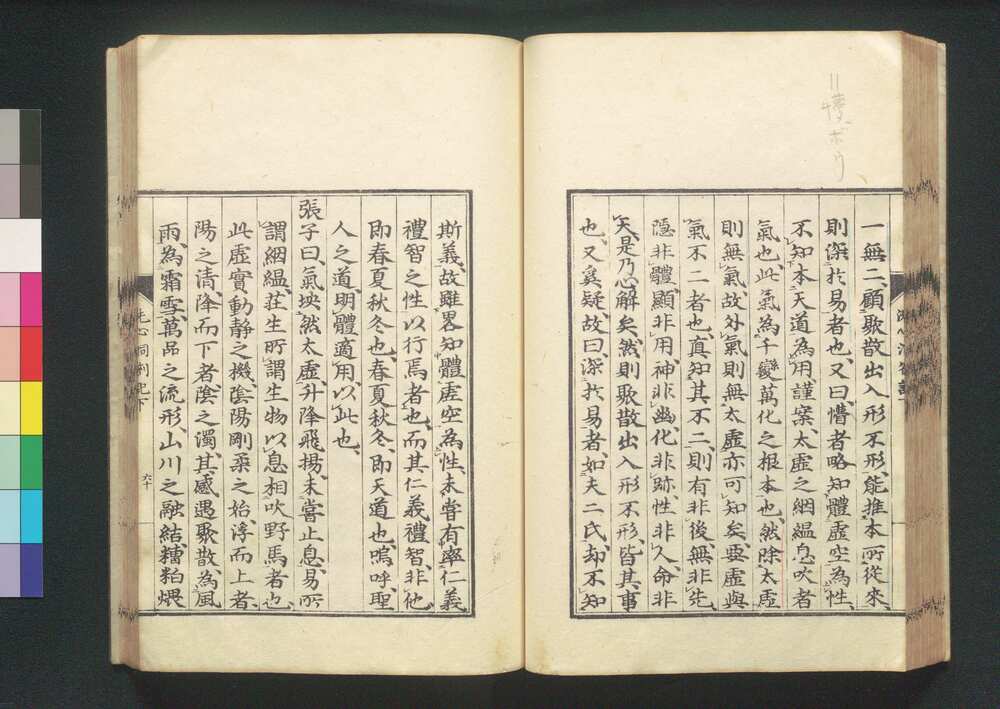 一無二、顧聚散出入形不形、能推本所從來、
則深於易者也、又曰、懵者略知體虛空為性、
不知本天道為用、謹案、太虛之絪縕息吹者
氣也、此氣為千變萬化之根本也、然除太虛
則無氣、故外氣則無太虛亦可知矣、要虛與
氣不二者也、真知其不二、則有非後無非先、
隱非體、顯非用、神非幽、化非跡、性非人、命非
天、是乃心解矣、然則聚散出入形不形、皆其事
也、又奚疑、故曰、深於易者、如夫二氏、却不知
斯義、故雖畧知體虛空為性、未嘗有率仁義
禮智之性、以行焉者也、而其仁義禮智、非他、
即春夏秋冬也、春夏秋冬、即天道也、嗚呼、聖
人之道、明體適用、以此也、
張子曰、氣坱然太虛、升降飛揚、未嘗止息、易所
謂絪縕、莊生所謂生物以息相吹野馬者也、
此虛實動靜之機、陰陽剛柔之始、浮而上者、
陽之清、降而下者、陰之濁、其感遇聚散、為風
雨、為霜雪、萬品之流形、山川之融結、糟粕煨
洗心洞劄記下
六十